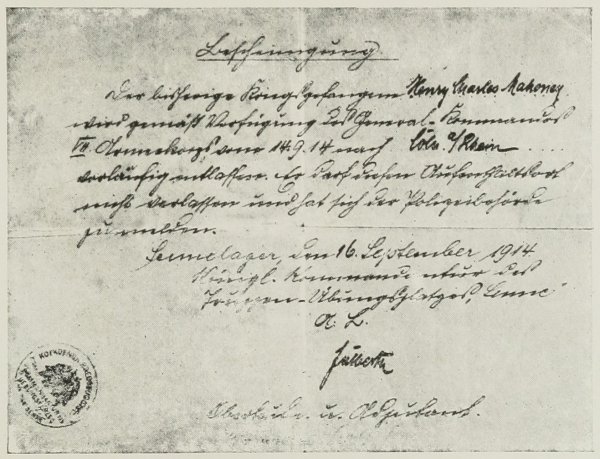 Bescheinigung
Der bisherige Kriegsgefangene Henry Charles Mahoney
wird gemäß Verfügung des General-Kommandos
VII Armeekorps vom 14.9.14 nach Cöln a/Rhein ....
vorläufig entlassen. Er darf diesen Aufenthaltsort
nicht verlassen und hat sich der Polizeibehörde
zu melden.
Sennelager, den 16. September 1914.
Königl. Kommandantur des
Truppen-Übungsplatzes Senne
A. B.
Oberleutn. u. Adjutant.